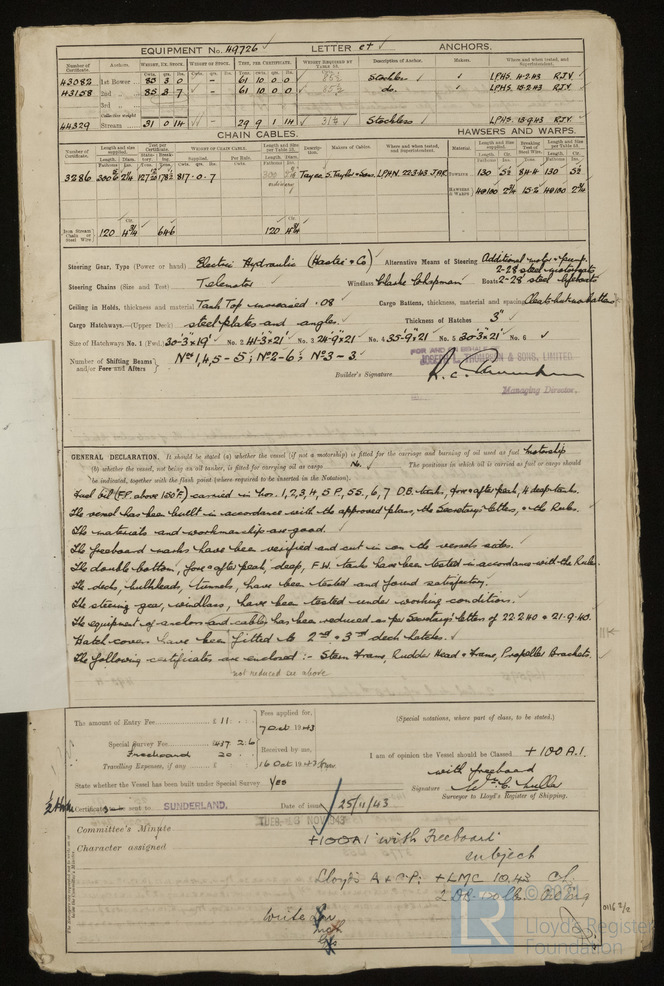 EQUIPMENT No. 49726 LETTER et ANCHORS.
Number of Certificate. Anchors. WEIGHT, EX. STOCK WEIGHT OF STOCK. TEST, PER CERTIFICATE. WEIGHT REQUIRED BY TABLE 53. Description of Anchor. Makers. Where and when tested, and Superintendent.
43082 1st Bower 85 3 0 - 61 10 0 0 Stockless LPHS. 4·2·43 R.J.V.
43158 2nd 85 3 7 - 61 10 0 0 85½ do. LPHS. 15·2·43 R.J.V.
3rd
Collective weight
44329 Stream 31 0 14 - 29 9 1 14 31½ Stockless LPHS. 15·9·43 R.J.V.
CHAIN CABLES. HAWSERS AND WARPS.
Number of Certificate. Length and size supplied. Test per Certificate. WEIGHT OF CHAIN CABLE. Length and size per Table 53. Description. Makers of Cables. Where and when tested, and Superintendent. Material. Length and size supplied. Breaking Test of Steel Wire. Length and size per Table 53.
3286 300 817·0·7 Tayco S. Taylor & Sons. LPHN. 22·3·43 J.A.R. Towline 130 5½ 84·4 130 5½
Hawsers & Warps
Iron Stream Chain or Steel Wire 120 4¾ 646 120 4¾
Steering Gear, Type (Power or hand) Electric Hydraulic (Hastie & Co) Alternative Means of Steering Additional motor & pump
Steering Chains (Size and Test) Telemotor Windlass Clarke Chapman Boats 2-28 steel lifeboats
Ceiling in Holds, thickness and material Tank Top increased ·08 Cargo Battens, thickness, material and spacing
Cargo Hatchways.—(Upper Deck) steel plates and angles. Thickness of Hatches 3"
Size of Hatchways No. 1 (Fwd.) 30'·3"×19' No. 2 41'·3"×21' No. 3 24'·9"×21' No. 4 35'·9"×21' No. 5 30'·3"×21' No. 6
Number of Shifting Beams and/or Fore and Afters Nos 1,4,5 – 5; No 2 – 6; No 3 – 3.
FOR AND ON BEHALF OF
JOSEPH L. THOMPSON & SONS, LIMITED.
Builder's Signature
Managing Director.
GENERAL DECLARATION. It should be stated (a) whether the vessel (if not a motorship) is fitted for the carriage and burning of oil used as fuel Motorship
(b) whether the vessel, not being an oil tanker, is fitted for carrying oil as cargo No. The positions in which oil is carried as fuel or cargo should
be indicated, together with the flash point (where required to be inserted in the Notation).
Fuel oil (F.P. above 150°F.) carried in Nos. 1, 2, 3, 4, 5 P, 5 S, 6, 7 D.B. tanks, fore & after peak, 4 deep tanks.
The vessel has been built in accordance with the approved plans, the Secretary's letters, & the Rules.
The materials and workmanship are good.
The freeboard marks have been verified and cut in on the vessels sides.
The double bottom, fore & after peak, deep, F.W. tanks have been tested in accordance with the Rules.
The decks, bulkheads, tunnels, have been tested and found satisfactory.
The steering gear, windlass, have been tested under working conditions.
The equipment of anchors and cables has been reduced as per Secretary's letters of 22·2·40 & 21·9·40.
Hatch covers have been fitted to 2nd & 3rd deck hatches.
The following certificates are enclosed :- Stern Frame, Rudder Head & Frame, Propeller Brackets.
not reduced see above
The amount of Entry Fee £ 11 : Fees applied for,
7 Oct 1943
Special Survey Fee £ 437 : 2 : 6
Freeboard 20 : Received by me,
Travelling Expenses, if any £ : 16 Oct 1943
State whether the Vessel has been built under Special Survey Yes
(Special notations, where part of class, to be stated.)
I am of opinion the Vessel should be Classed +100 A.1.
with freeboard
Signature
Surveyor to Lloyd's Register of Shipping.
Certificate to be sent to SUNDERLAND. Date of issue 25/11/43
TUES. 16 NOV 1943
Committee's Minute
Character assigned +100A1 "with Freeboard"
subject
Lloyd's A & C.P. +LMC 10,43 C.L.
© 2021
Lloyd's Register
Foundation
LR